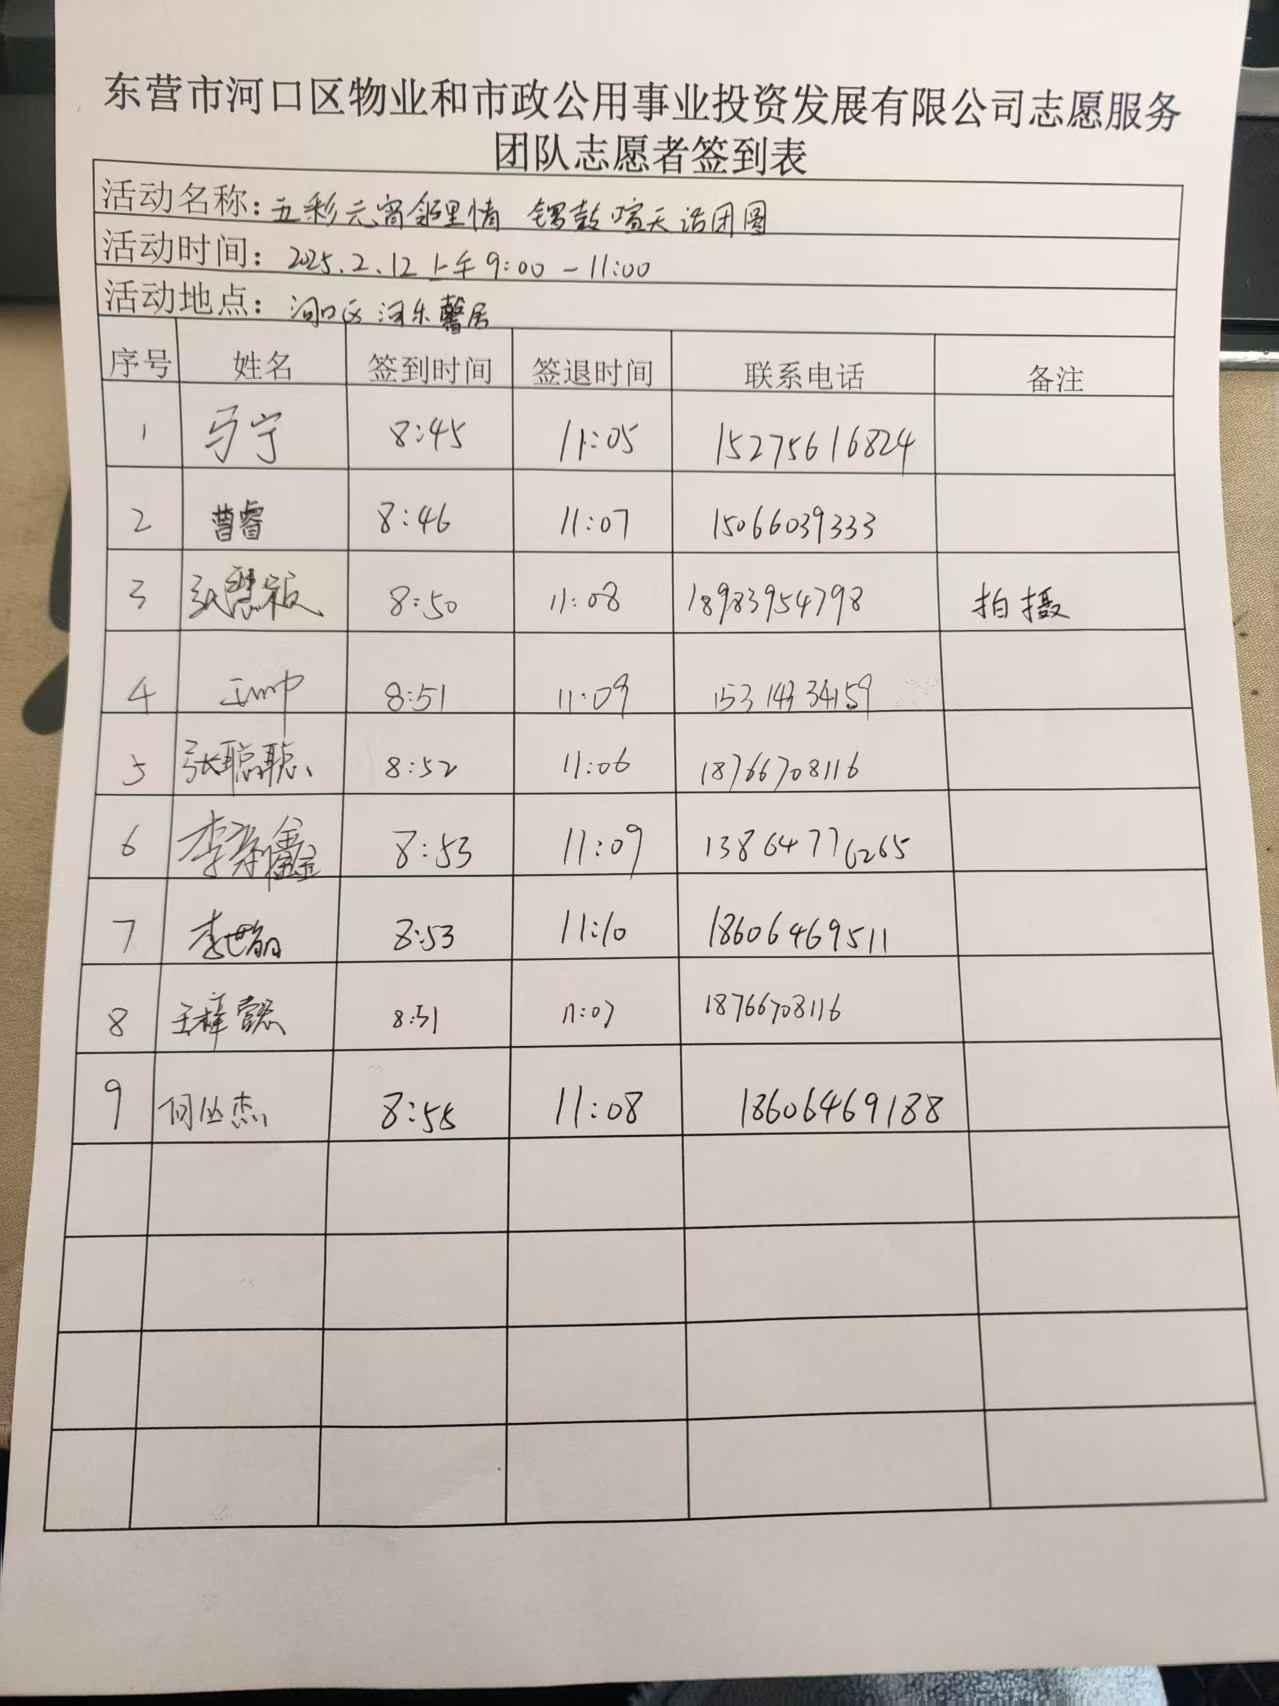 东营市河口区物业和市政公用事业投资发展有限公司志愿服务
团队志愿者签到表
活动名称：五彩元宵邻里情 锣鼓喧天话团圆
活动时间：2025.2.12 上午 9:00-11:00
活动地点：河口区 河乐馨居
序号 姓名 签到时间 签退时间 联系电话 备注
1 马宁 8:45 11:05 15275616824
2 曹睿 8:46 11:07 15066039333
3 8:50 11:08 18983954798 拍摄
4 8:51 11:09 15314334159
5 张聪聪 8:52 11:06 18766708116
6 李 鑫 8:53 11:09 13864776265
7 李世 8:53 11:10 18606469511
8 王梓懿 8:51 11:07 18766708116
9 何丛杰 8:55 11:08 18606469188